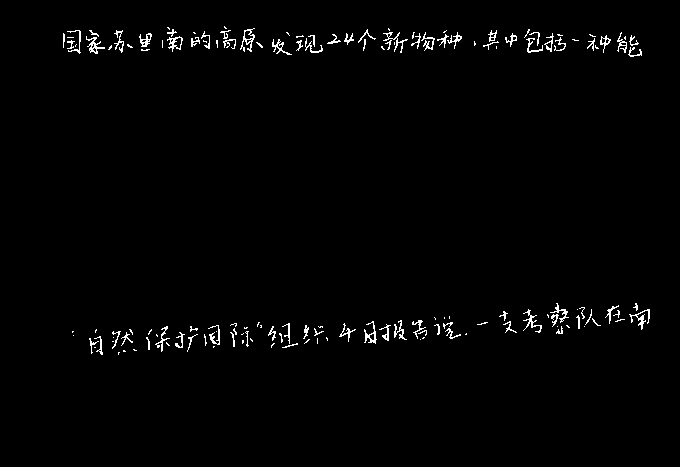 国家苏里南的高原发现24个新物种,其中包括一种能
"自然保护国际"组织4日报告说,一支考察队在南